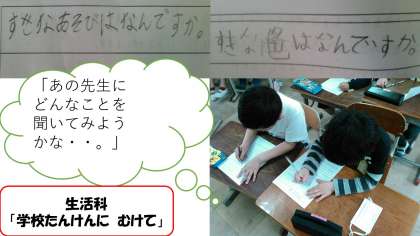 すきなあそびはなんですか。
すきな色はなんですか
「あの先生に
どんなことを
聞いてみよう
かな・・。」
生活科
「学校たんけんに むけて」